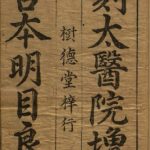 刻太醫院增
樹德堂梓行
古本明目良